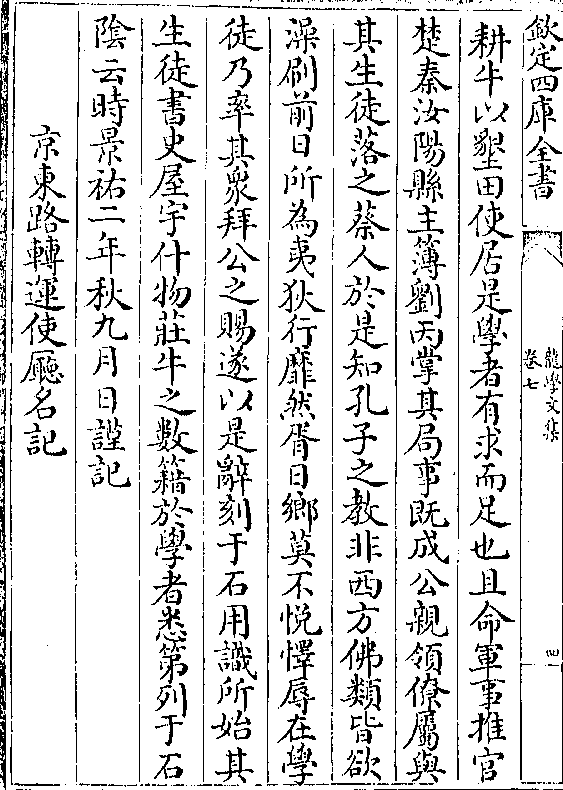 欽定四庫全書
龍學文集
卷七
四
耕牛以墾田使居是學者有求而足也且命軍事推官
楚秦汝陽縣主簿劉丙掌其局事既成公親領僚屬與
其生徒落之蔡人於是知孔子之教非西方佛類皆欲
澡刷前日所為夷狄行靡然胥日鄉莫不悅懌辱在學
徒乃率其衆拜公之賜遂以是辭刻于石用識所始其
生徒書史屋宇什物莊牛之數籍於學者悉第列于石
陰云時景祐二年秋九月日謹記
京東路轉運使廳名記